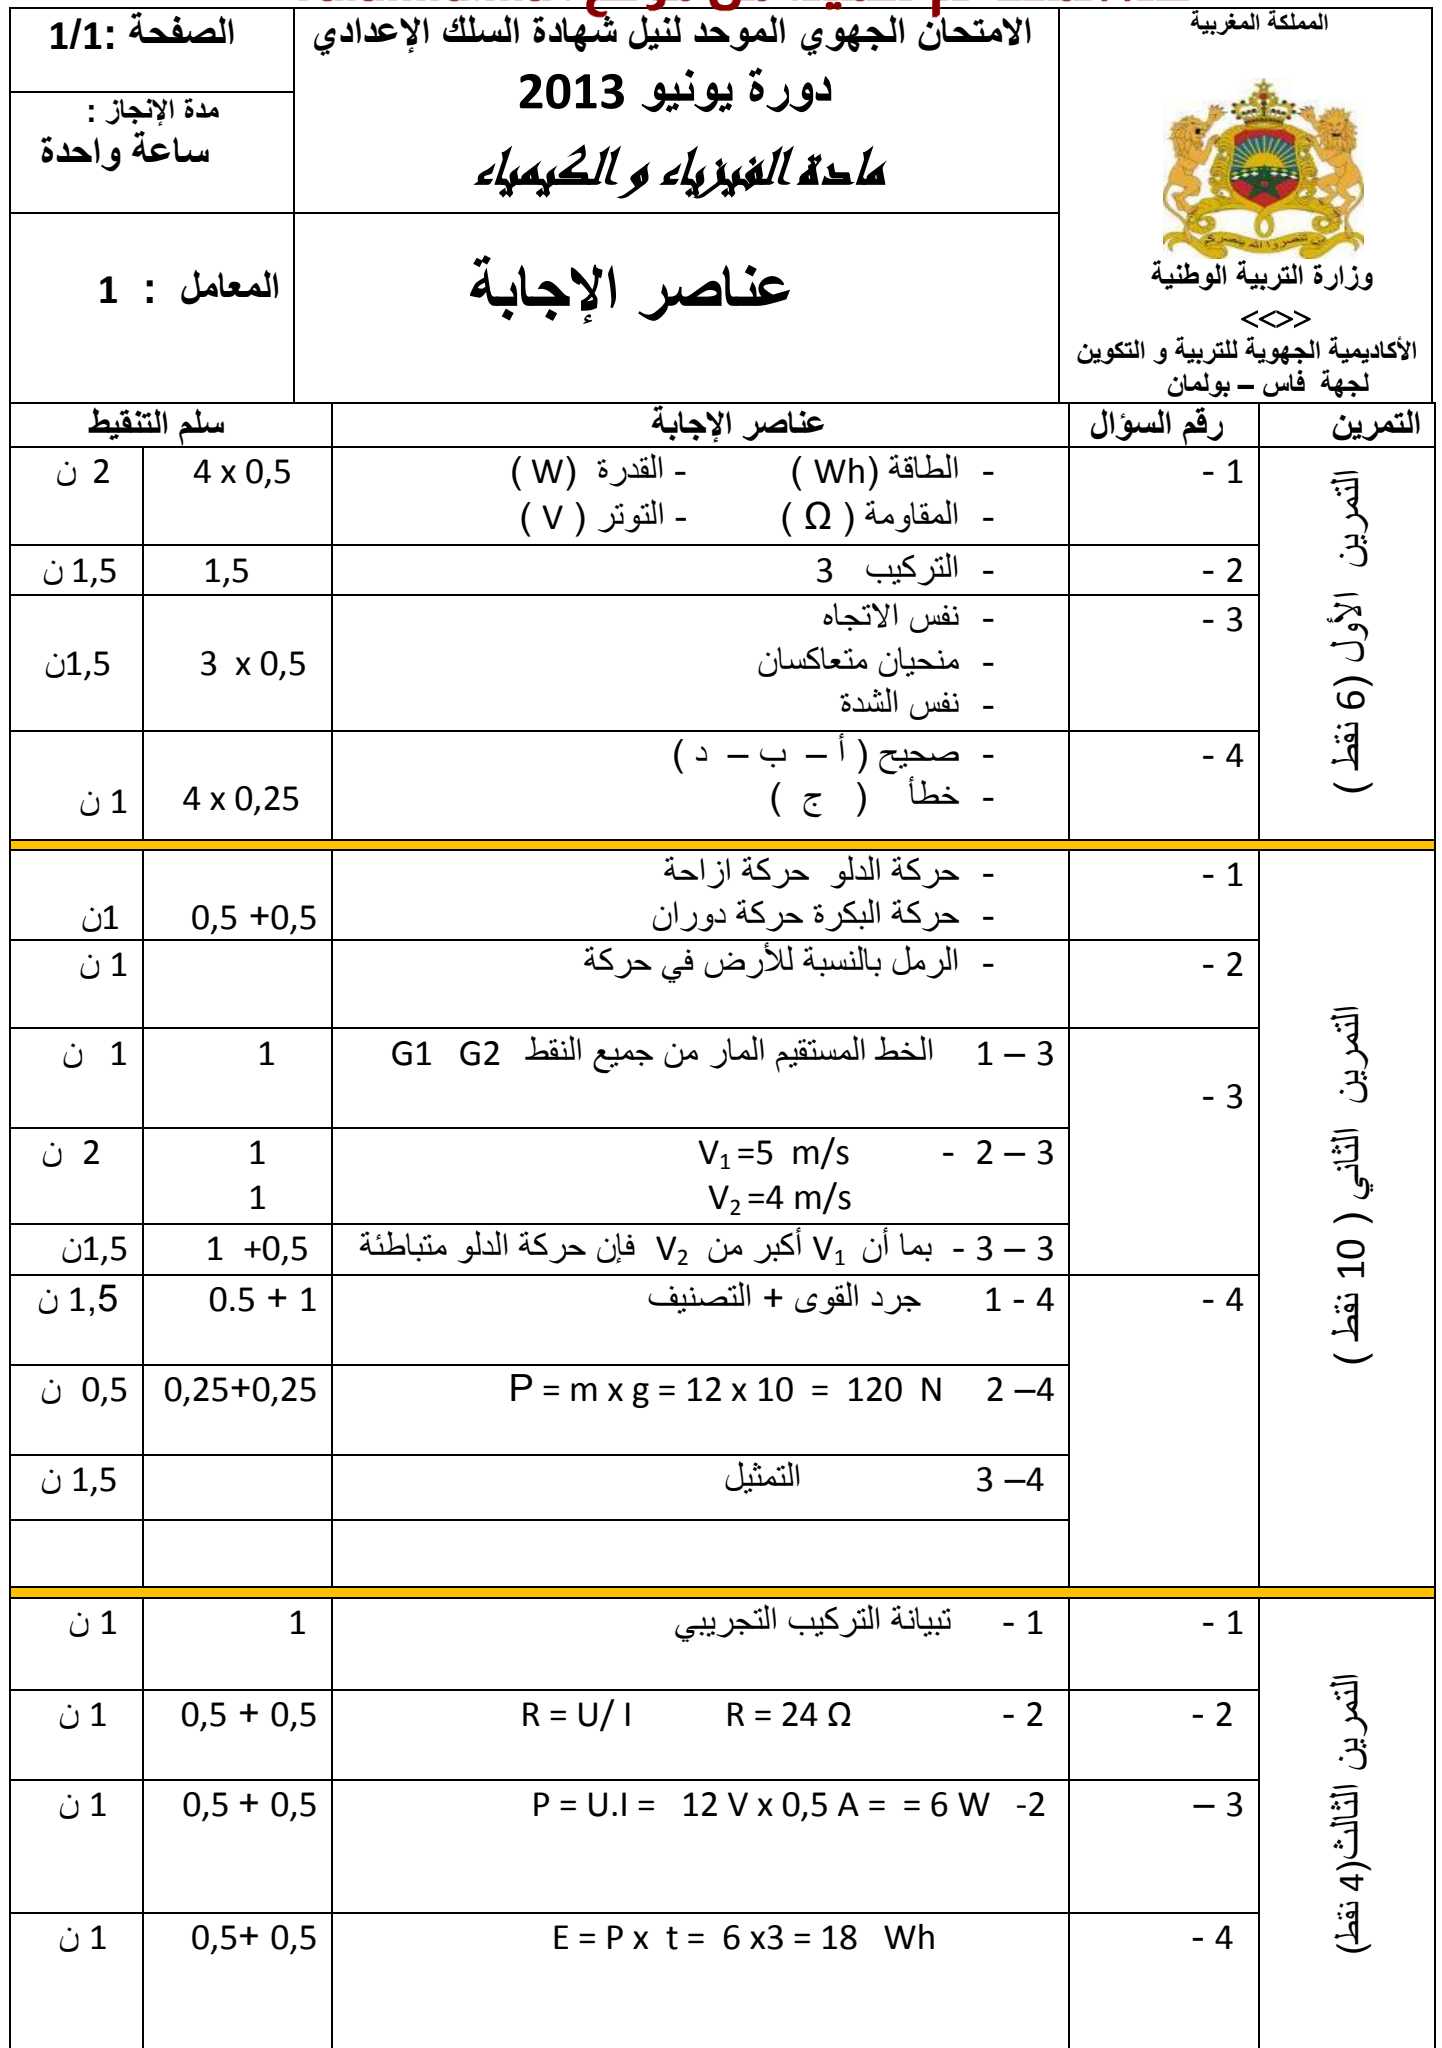 المملكة المغربية
وزارة التربية الوطنية
<<>>
الأكاديمية الجهوية للتربية و التكوين
لجهة فاس – بولمان
الامتحان الجهوي الموحد لنيل شهادة السلك الإعدادي
دورة يونيو 2013
مادة الفيزياء و الكيمياء
الصفحة :1/1
مدة الإنجاز :
ساعة واحدة
عناصر الإجابة
المعامل : 1
التمرين رقم السؤال عناصر الإجابة سلم التنقيط
التمرين الأول (6 نقط )
1 - - الطاقة (Wh ) - القدرة (W ) 4 x 0,5 2 ن
- المقاومة ( Ω ) - التوتر ( V )
2 - - التركيب 3 1,5 1,5 ن
3 - - نفس الاتجاه
- منحيان متعاكسان 3 x 0,5 1,5ن
- نفس الشدة
4 - - صحيح ( أ – ب – د )
- خطأ ( ج ) 4 x 0,25 1 ن
التمرين الثاني ( 10 نقط )
1 - - حركة الدلو حركة ازاحة
- حركة البكرة حركة دوران 0,5 +0,5 1ن
2 - - الرمل بالنسبة للأرض في حركة 1 ن
3 – 1 الخط المستقيم المار من جميع النقط G1 G2 1 1 ن
3 -
3 – 2 - V1 =5 m/s 1 2 ن
V2 =4 m/s 1
3 – 3 - بما أن V1 أكبر من V2 فإن حركة الدلو متباطئة 1 +0,5 1,5ن
4 - 4 - 1 جرد القوى + التصنيف 0.5 + 1 1,5 ن
4– 2 P = m x g = 12 x 10 = 120 N 0,25+0,25 0,5 ن
4– 3 التمثيل 1,5 ن
التمرين الثالث(4 نقط)
1 - 1 - تبيانة التركيب التجريبي 1 1 ن
2 - 2 - R = U/ I R = 24 Ω 0,5 + 0,5 1 ن
3 – 2- P = U.I = 12 V x 0,5 A = = 6 W 0,5 + 0,5 1 ن
4 - E = P x t = 6 x3 = 18 Wh 0,5+ 0,5 1 ن